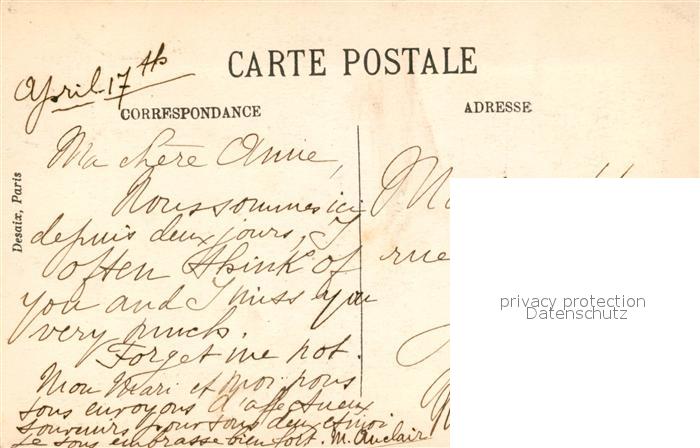 April 17th
CARTE POSTALE
CORRESPONDANCE
ADRESSE
Desaix, Paris
Ma chère Annie,
Nous sommes ici
depuis deux jours, I
often think of
you and I miss you
very much.
Forget me not.
Mon Mari et moi nous
vous envoyons d'affectueux
souvenirs pour vous deux et moi
je vous embrasse bien fort. M. Auclair
rue
privacy protection
Datenschutz